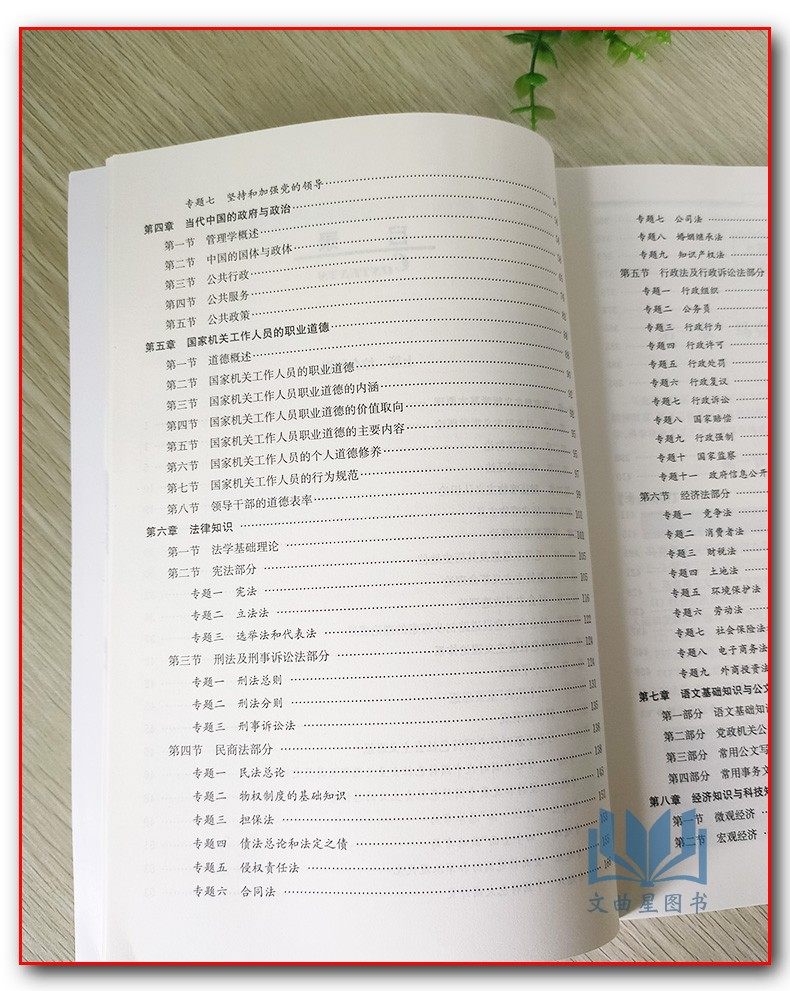 专题七 坚持和加强党的领导
第四章 当代中国的政府与政治
第一节 管理学概述
第二节 中国的国体与政体
第三节 公共行政
第四节 公共服务
第五节 公共政策
第五章 国家机关工作人员的职业道德
第一节 道德概述
第二节 国家机关工作人员的职业道德
第三节 国家机关工作人员职业道德的内涵
第四节 国家机关工作人员职业道德的价值取向
第五节 国家机关工作人员职业道德的主要内容
第六节 国家机关工作人员的个人道德修养
第七节 国家机关工作人员的行为规范 97
第八节 领导干部的道德表率 99
第六章 法律知识 102
第一节 法学基础理论 102
第二节 宪法部分 105
专题一 宪法 105
专题二 立法法 116
专题三 选举法和代表法 122
第三节 刑法及刑事诉讼法部分 124
专题一 刑法总则 124
专题二 刑法分则 131
专题三 刑事诉讼法 136
第四节 民商法部分 138
专题一 民法总论
专题二 物权制度的基础知识
专题三 担保法
专题四 债法总论和法定之债
专题五 侵权责任法
专题六 合同法
专题七 公司法
专题八 婚姻继承法
专题九 知识产权法
第五节 行政法及行政诉讼法部分
专题一 行政组织
专题二 公务员
专题三 行政行为
专题四 行政许可
专题五 行政处罚
专题六 行政复议
专题七 行政诉讼
专题八 国家赔偿
专题九 行政强制
专题十 国家监察
专题十一 政府信息公开
第六节 经济法部分
专题一 竞争法
专题二 消费者法
专题三 财税法
专题四 土地法
专题五 环境保护法
专题六 劳动法
专题七 社会保险法
专题八 电子商务法
专题九 外商投资法
第七章 语文基础知识与公文
第一部分 语文基础知识
第二部分 党政机关公
第三部分 常用公文写
第四部分 常用事务文
第八章 经济知识与科技知
第一节 微观经济
第二节 宏观经济
文曲星图书